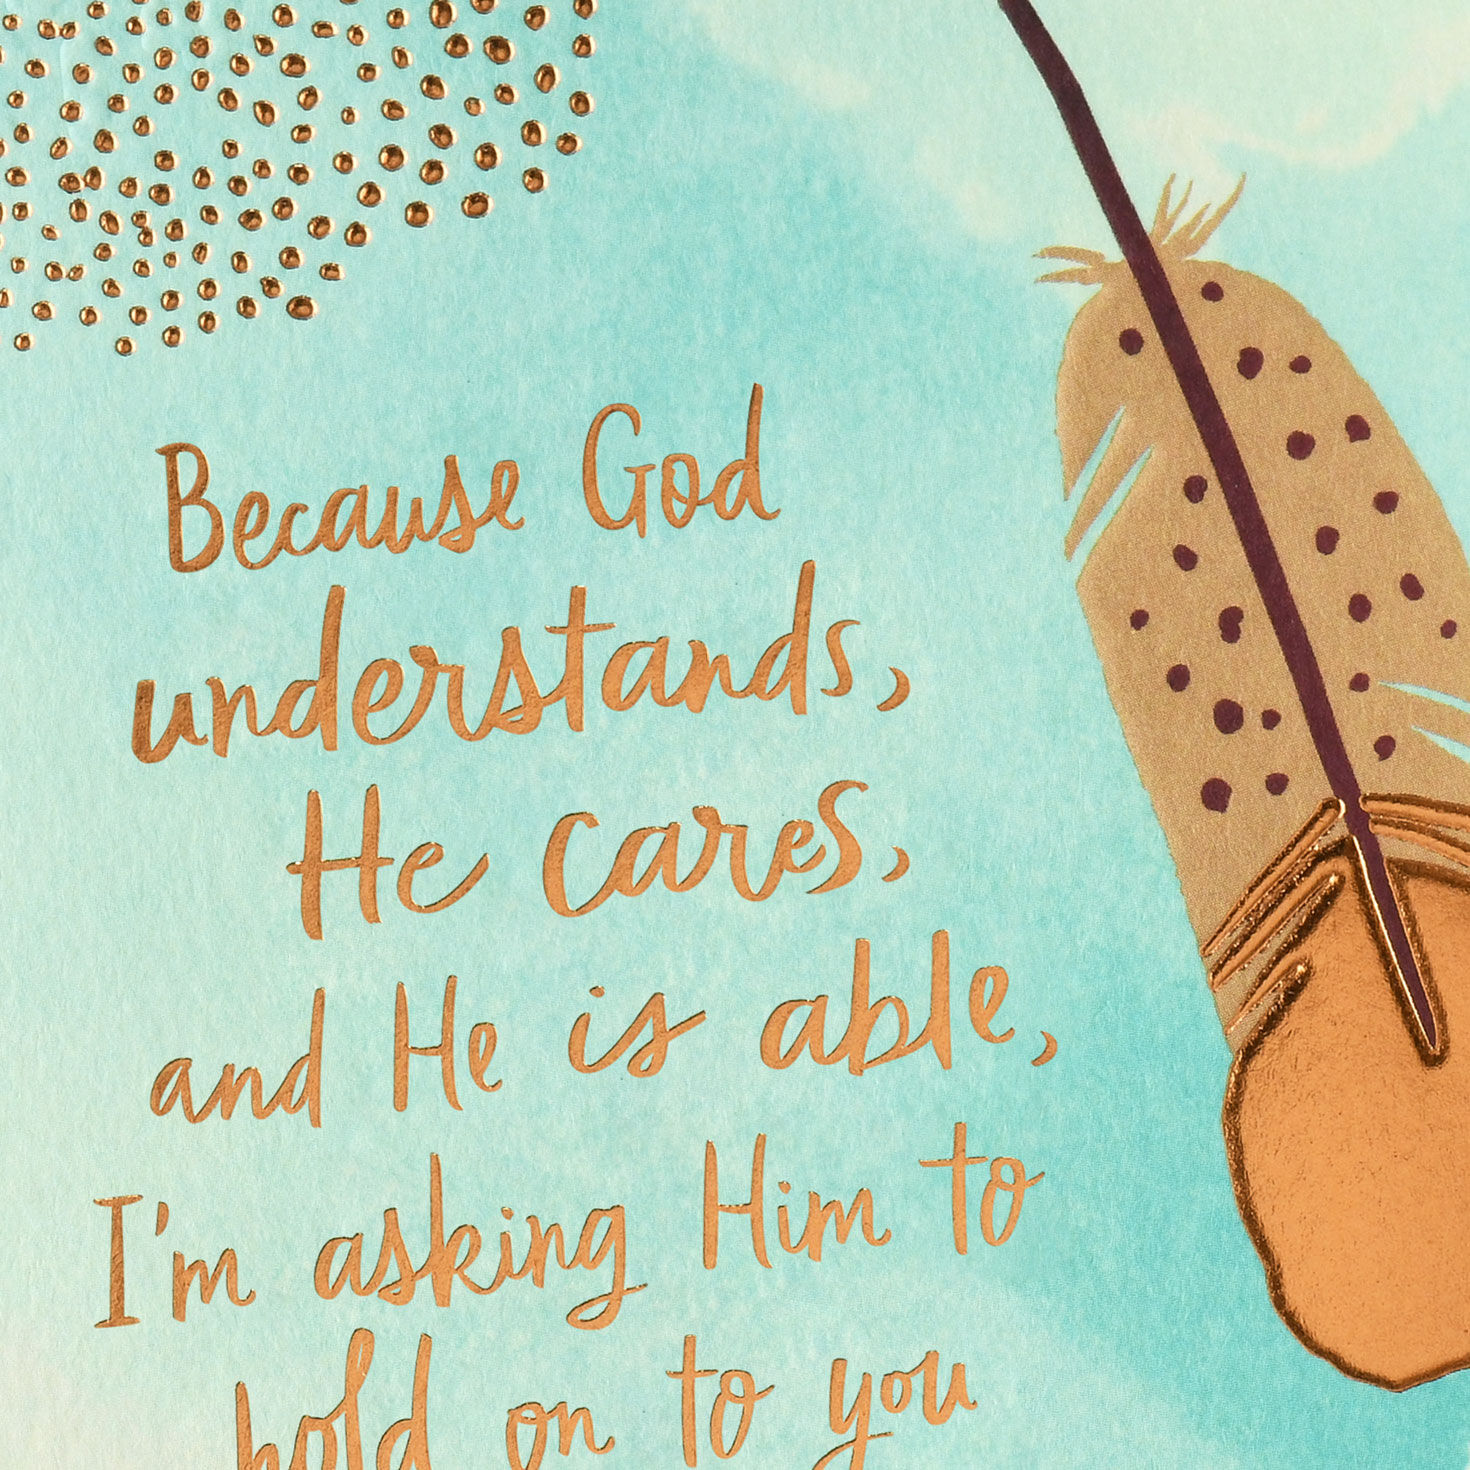 Because God
understands,
He cares,
and He is able,
I'm asking Him to
hold on to you